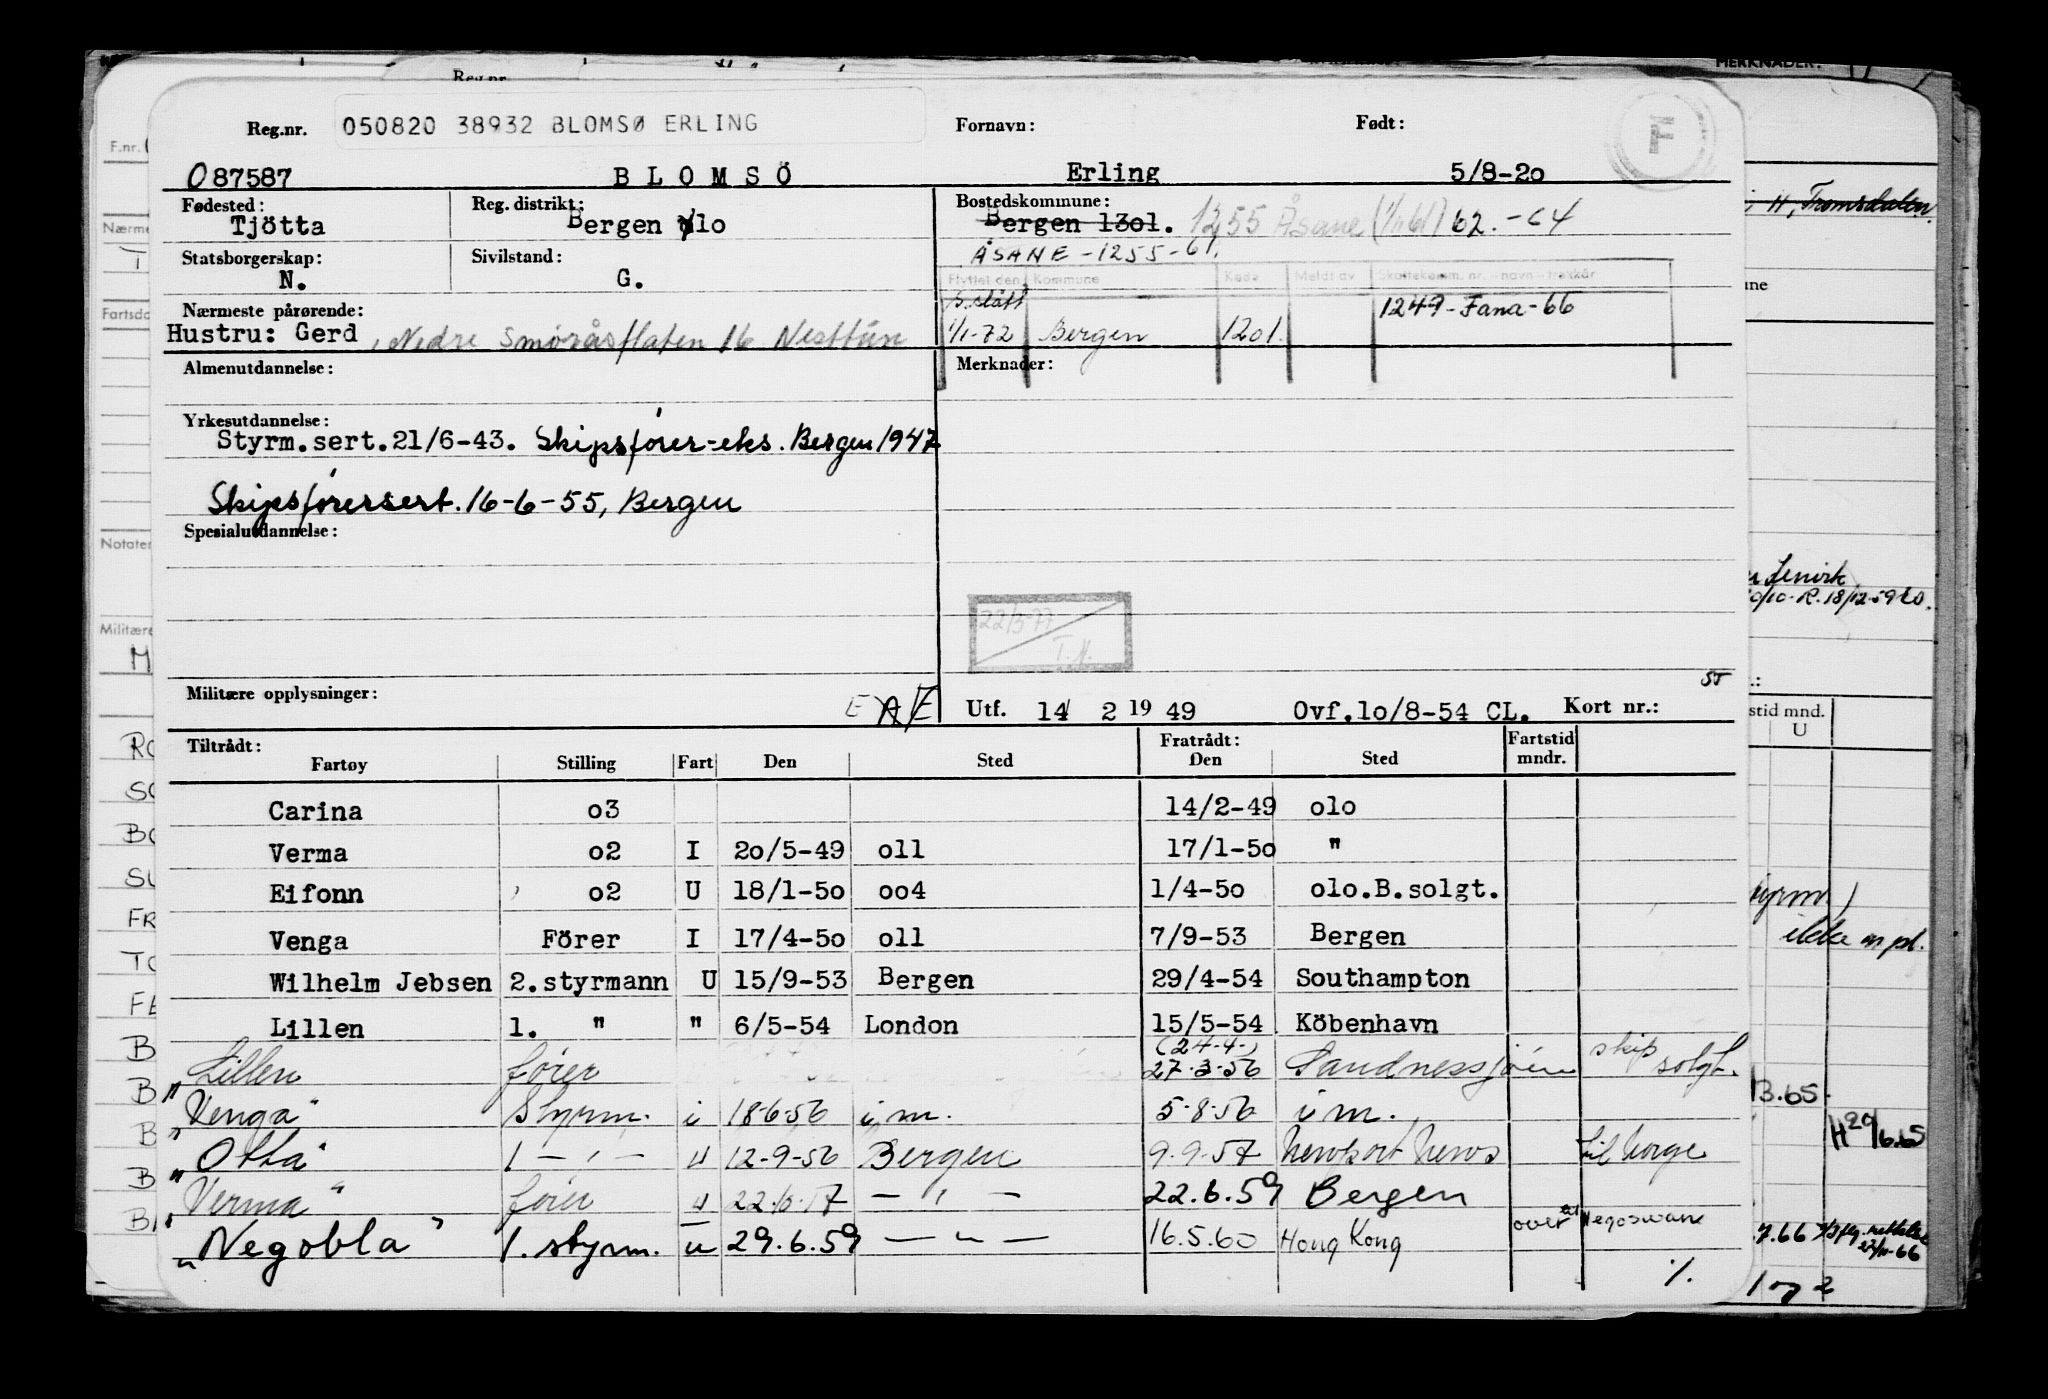 Reg.nr. 050820 38932 BLOMSØ ERLING Fornavn: Født: F
087587 BLOMSÖ Erling 5/8-2o
Fødested: Tjötta Reg. distrikt: Bergen olo Bostedskommune: Bergen 13ol. 1255 Åsane (1/1 61) 62.-64
ÅSANE-1255-61.
Statsborgerskap: N. Sivilstand: G.
Flyttet den Kommune Kode Meldt av Skattekomm. nr.-navn-trekkår
1249-Fana-66
Nærmeste pårørende:
Hustru: Gerd, Nedre Smøråsflaten 16 Nesttun
1/1-72 Bergen 1201.
Almenutdannelse: Merknader:
Yrkesutdannelse:
Styrm.sert.21/6-43. Skipsfører-eks. Bergen 1947
Skipsførersert. 16-6-55, Bergen
Spesialutdannelse:
22/3-77
T.N.
Militære opplysninger: E A/E Utf. 14 2 19 49 Ovf.lo/8-54 CL. Kort nr.:
Tiltrådt: Fratrådt: Fartstid
Fartøy Stilling Fart Den Sted Den Sted mndr.
Carina o3 14/2-49 olo
Verma o2 I 2o/5-49 oll 17/1-5o "
Eifonn o2 U 18/1-5o oo4 1/4-5o olo.B.solgt.
Venga Förer I 17/4-5o oll 7/9-53 Bergen
Wilhelm Jebsen 2.styrmann U 15/9-53 Bergen 29/4-54 Southampton
Lillen 1. " " 6/5-54 London 15/5-54 Köbenhavn
(24-4-)
Lillen fører 27.3-56 Sandnessjøen skip solgt.
"Venga" Styrm. i 18-6-56 i.m. 5-8-56 i m.
"Otta" 1 - " - u 12-9-56 Bergen 9-9-57 Newport News til Norge
"Verma" fører u 22.10.57 - " - 22.6.59 Bergen
"Negobla" 1. styrm. u 29.6.59 - " - 16.5.60 Hong Kong over til Negoswane
%.
F.nr.
Fartsdo
Notater
Militære
MERKNADER:
Tromsdalen.
stid mnd.
U
ikke m pl.
B.65.
H 29/6.65
7.66
22/11-66
1 72